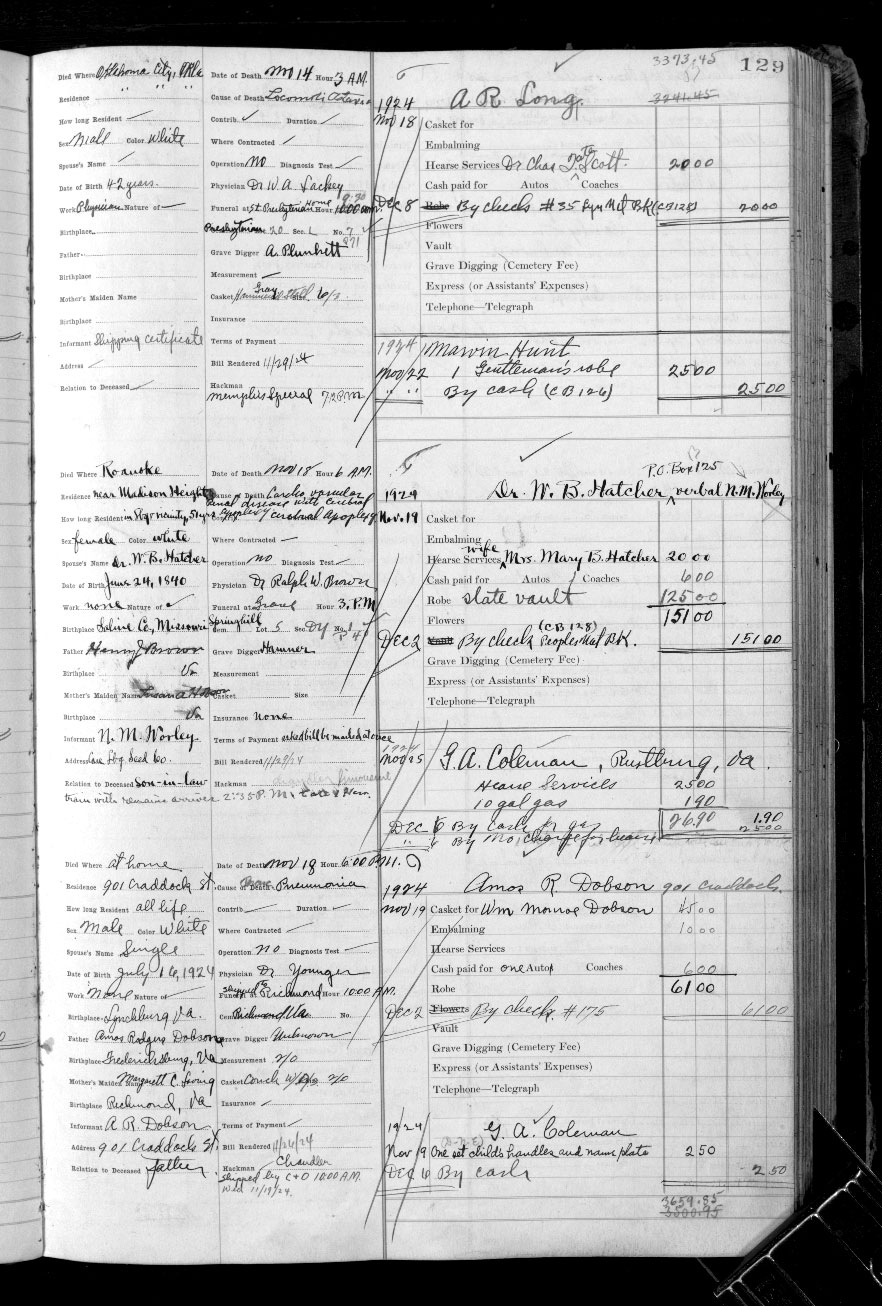 3373.45
129
3241.45
Died Where Oklahoma City, Okla Date of Death Nov 14 Hour 3 A.M.
Residence " " " Cause of Death Locomotor
How long Resident Contrib. Duration
Sex Male Color White Where Contracted
Spouse's Name Operation No Diagnosis Test
Date of Birth 42 years. Physician Dr W. A. Lackey
Work Physician Nature of Funeral at St Presbyterian Home Hour 10:00 am
Birthplace Presbyterian 20 Sec. L No. 7
Father Grave Digger A. Plunkett
Birthplace Measurement
Mother's Maiden Name Casket Gray Size 6/3
Birthplace Insurance
Informant Shipping certificate Terms of Payment
Address Bill Rendered 11/29/24
Relation to Deceased Hackman
Memphis Special 7:20 P.M.
1924 A R Long.
Nov 18 Casket for
Embalming
Hearse Services Dr Chas Tate Scott. 20 00
Cash paid for Autos Coaches
Dec 8 Robe By check #35 Lyn Nat Bk (CB128) 20 00
Flowers
Vault
Grave Digging (Cemetery Fee)
Express (or Assistants' Expenses)
Telephone—Telegraph
1924 Marvin Hunt,
Nov 22 1 Gentleman's robe 25 00
" " By cash (CB126) 25 00
Died Where Roanoke Date of Death Nov 18 Hour 6 A.M.
Residence near Madison Heights Cause of Death Cardio vascular
renal disease with cerebral
How long Resident in Lbg vicinity, 51 yrs apoplexy cerebral apoplexy
Sex female Color white Where Contracted
Spouse's Name Dr. W. B. Hatcher Operation no Diagnosis Test
Date of Birth June 24, 1840 Physician Dr Ralph W. Brown
Work none Nature of Funeral at Grave Hour 3. P.M
Birthplace Saline Co, Missouri Springhill Cem. Lot 5 Sec. No.
Father Henry Brown Grave Digger Hamner
Birthplace Va Measurement
Mother's Maiden Name Susan A. Casket Size
Birthplace Va Insurance none
Informant N. M. Worley. Terms of Payment asked bill be mailed at once
Address Care Lbg Seed Co. Bill Rendered 11/29/24
Relation to Deceased Son-in-law Hackman Chandler limousine
train with remains arrives 2:35 P. M.
P.O. Box 125
1924 Dr. W. B. Hatcher, verbal N. M. Worley
Nov. 19 Casket for
Embalming
Hearse Services wife Mrs. Mary B. Hatcher 20 00
Cash paid for Autos / Coaches 6 00
Robe slate vault 125 00
Flowers 151 00
Dec 2 Vault By check Peoples Nat BK. (CB 128) 151 00
Grave Digging (Cemetery Fee)
Express (or Assistants' Expenses)
Telephone—Telegraph
1924
Nov 25 G. A. Coleman, Rustburg, Va.
Hearse Services 25 00
10 gal gas 1 90
26.90
Dec 6 By cash for gas 1.90
" 6 By Mo. Charge for hearse 25 00
Died Where at home Date of Death Nov 18 Hour 6:00 P.M.
Residence 901 Craddock St Cause of Death Pneumonia
How long Resident all life Contrib. Duration
Sex Male Color White Where Contracted
Spouse's Name Single Operation No Diagnosis Test
Date of Birth July 16, 1924 Physician Dr. Younger
Work None Nature of Funeral shipped to Richmond Hour 10:00 A.M.
Birthplace Lynchburg Va. Cem. Richmond, Va. No.
Father Amos Rodgers Dobson Grave Digger Unknown
Birthplace Fredericksburg, Va Measurement 2/0
Mother's Maiden Name Margarett C. Loving Casket Couch 2/0
Birthplace Richmond, Va Insurance
Informant A R. Dobson Terms of Payment
Address 901 Craddock St. Bill Rendered 11/26/24
Relation to Deceased father Hackman Chandler
shipped by C+O 10:00 A.M.
Wed 11/19/24.
1924 Amos R Dobson 901 Craddock.
Nov 19 Casket for Wm Monroe Dobson 45 00
Embalming 10 00
Hearse Services
Cash paid for one Autos Coaches 6 00
Robe 61 00
Dec 2 Flowers By check #175 61 00
Vault
Grave Digging (Cemetery Fee)
Express (or Assistants' Expenses)
Telephone—Telegraph
1924 G. A. Coleman
Nov 19 One set child's handles and name plate 2 50
Dec 6 By cash 2 50
3659.85
3500.95